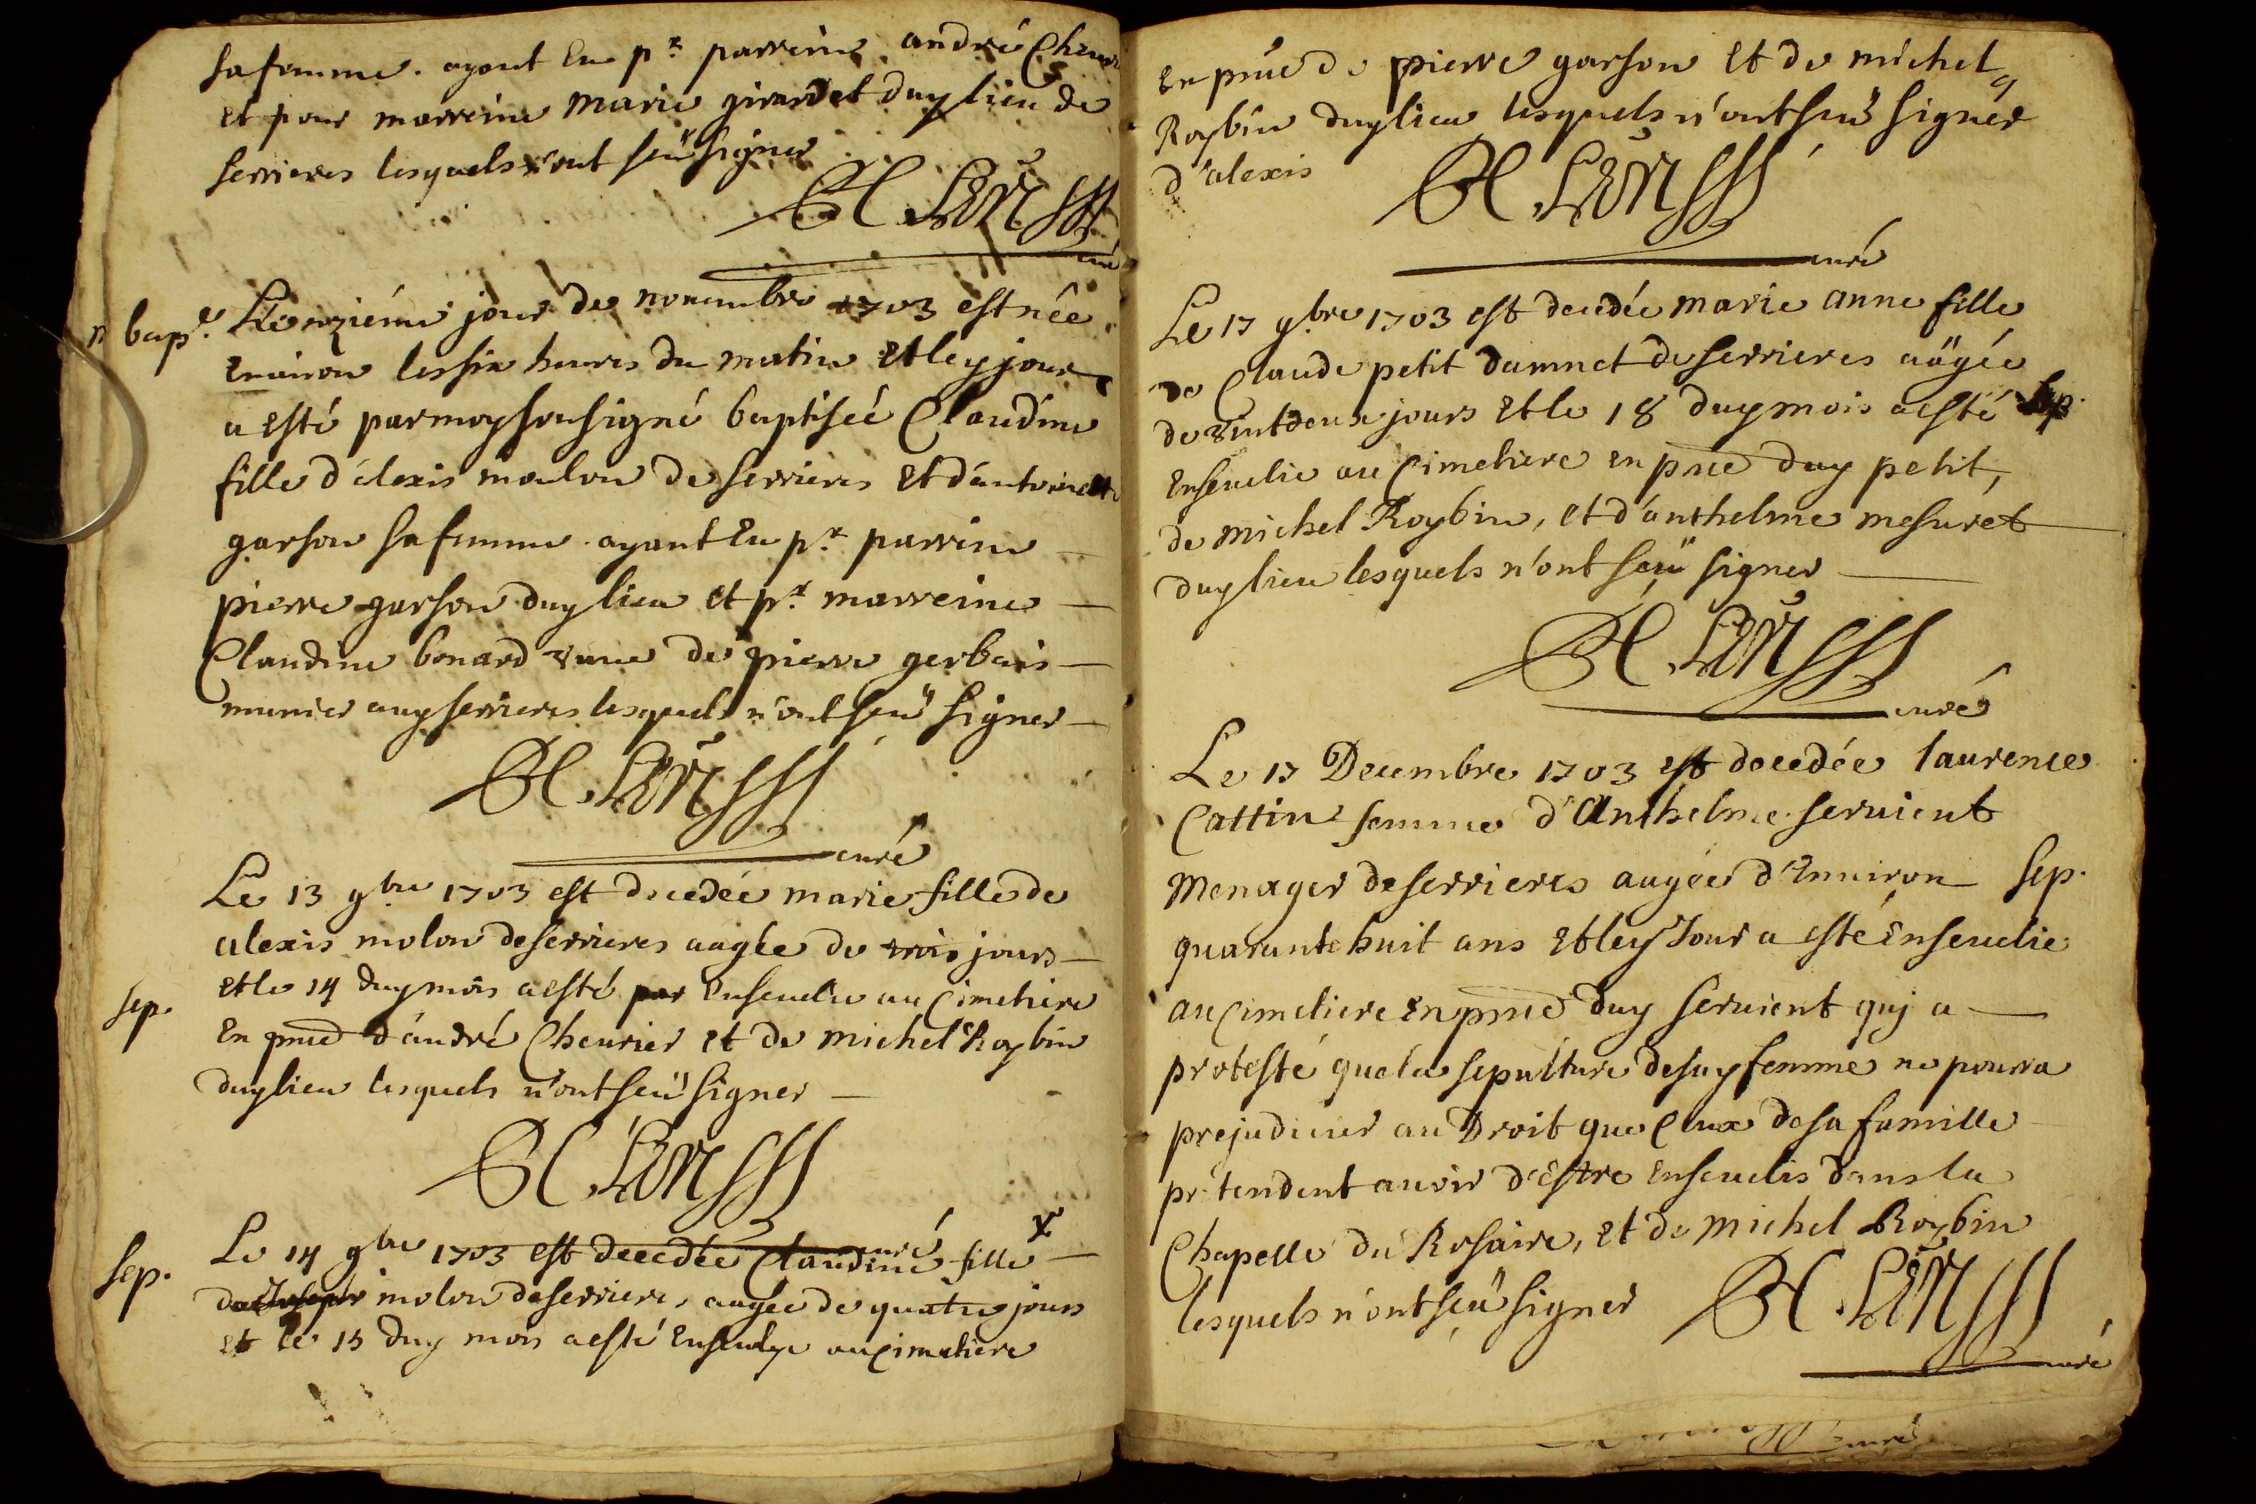 sa femme. ayant eu pr parrein andré Cheur
et pour marreine marie girardet duy lieu de
serrieres lesquels n'ont seü signer
curé
bap.e
Le onziéme jour de nouembre 1703 est née
enuiron les six heures du matin et ley jour
a esté par moy soussigné baptiseé Claudine
fille d'alexis moulon de serrieres et d'antoinette
garson sa femme. ayant eu pr parrein
pierre garson duy lieu et pr marreine
Claudine bonard veuue de pierre gerbais
munier auy serrieres lesquels n'ont seü signer
curé
Le 13 gbre 1703 est decedée marie fille de
alexis molon de serrieres aagée de trois jours
sep.
et le 14 duy mois a esté par enseuelie au Cimetiere
en pnce d'andré Cheurier et de michel Roybin
duy lieu lesquels n'ont seü signer
curé
sep.
Le 14 gbre 1703 est decedée Claudine fille x
de Joseph molon de serrieres aagée de quatre jours
et le 15 duy mois a esté enseuelye au Cimetiere
en pnce de pierre garson et de michel
Roybin duy lieu lesquels n'ont seü signer
d'alexis
curé
Le 17 gbre 1703 est decedée marie anne fille
de Claude petit damnet de serrieres aägée
de vint deux jours et le 18 duy mois a esté
sep.
enseuelie au Cimetiere en pnce duy petit,
de michel Roybin, et d'anthelme mesuret
duy lieu lesquels n'ont seü signer
curé
Le 17 Decembre 1703 est decedée laurence
Cattin femme d'Anthelme seruient
Menager de serrieres augée d'enuiron
sep.
quarante huit ans et ley Jour a esté enseuelie
au Cimetiere en pnce duy seruient quj a
protesté que la sepulture de say femme ne pourra
prejudicier au Droit que Ceux de sa famille
pretendent auoir d'estre enseuelis dans la
Chapelle du Rosaire, et de michel Roybin
lesquels n'ont seü signer
curé